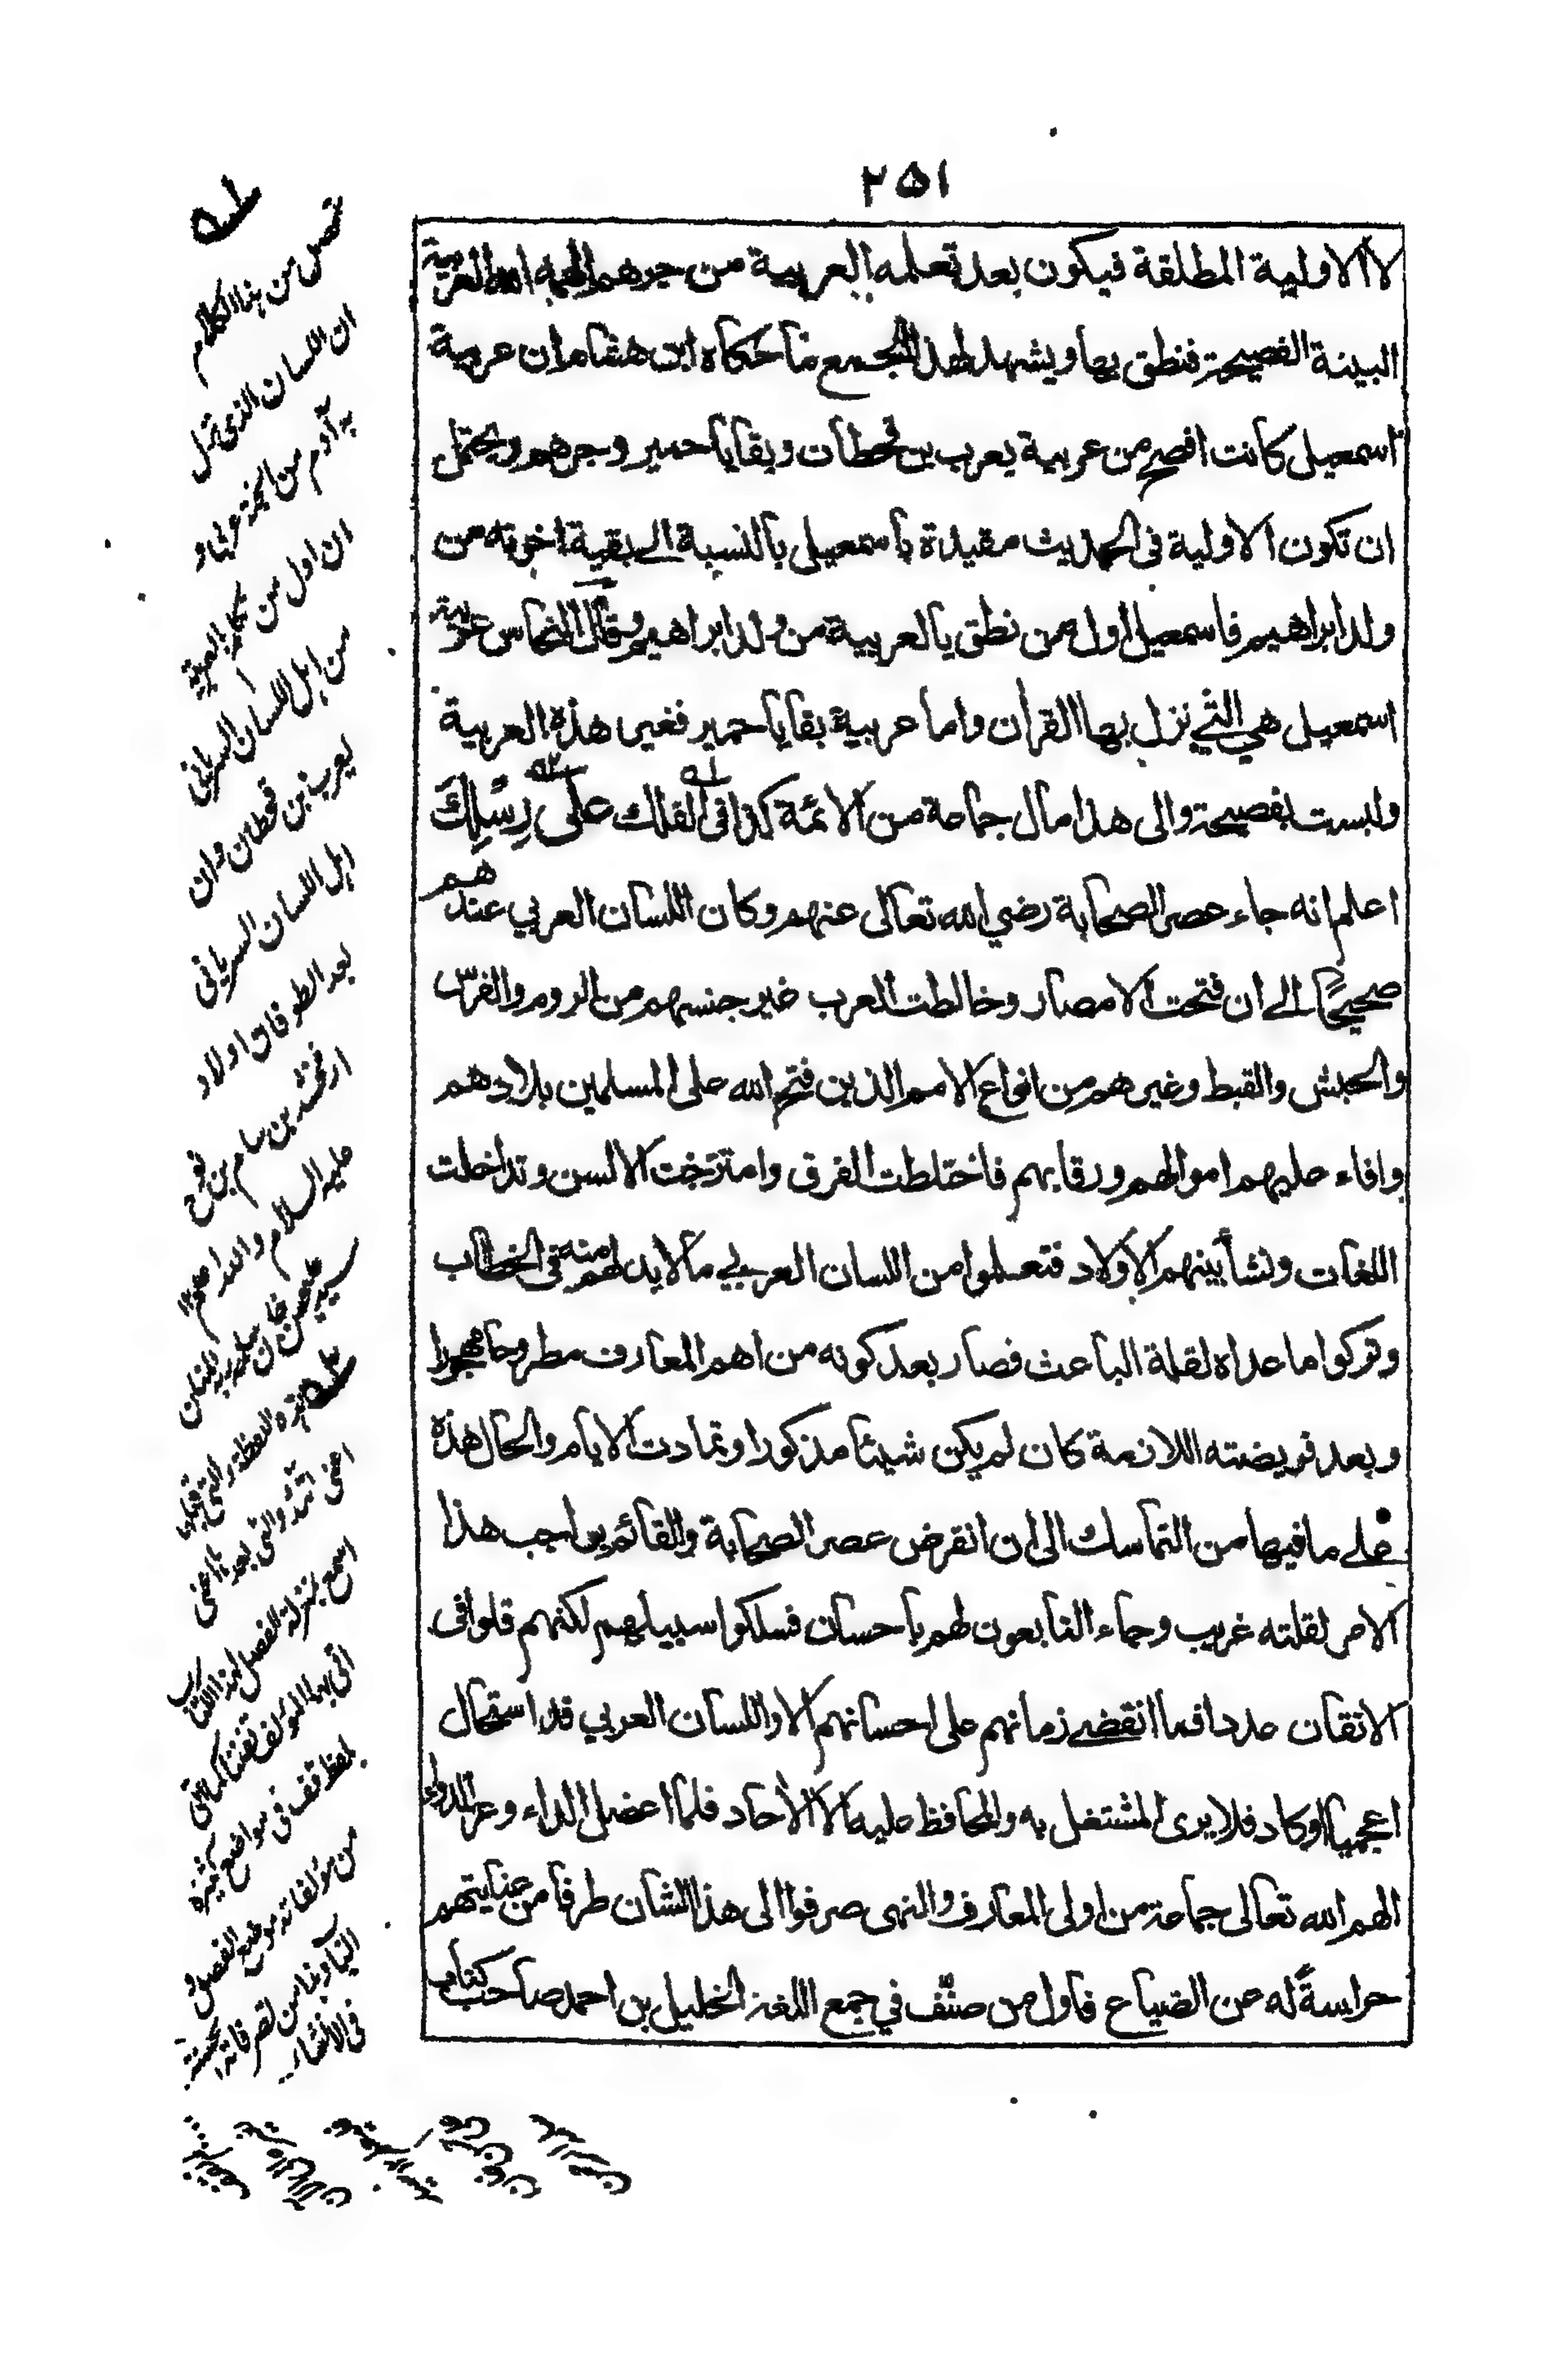 ٢٥١
لا الاولية المطلقة فيكون بعد تعلمه العربية من جرهم الهمه الله العربية
البينة الفصيحة فنطق بها ويشهد لهذا الجمع ما حكاه ابن هشام ان عربية
اسمعيل كانت افصح من عربية يعرب بن قحطان وبقايا حمير وجرهم ويحتمل
ان تكون الاولية فى الحديث مقيدة باسمعيل بالنسبة الے بقية اخوته من
ولد ابراهيم فاسمعيل اول من نطق بالعربية من ولد ابراهيم وقال النحاس عربية
اسمعيل هي التي نزل بها القران واما عربية بقايا حمير فغير هذه العربية
وليست بفصيحة والى هذا مال جماعة من الائمة كذا فى الفلك على رِسْلِكَ
اعلم انه جاء عصر الصحابة رضي الله تعالى عنهم وكان اللسان العربي عندهم
صحيحًا الے ان فتحت الامصار وخالطت العرب غير جنسهم من الروم والفرس
والحبش والقبط وغيرهم من انواع الامم الذين فتح الله على المسلمين بلادهم
وافاء عليهم اموالهم ورقابهم فاختلطت الفرق وامتزجت الالسن وتداخلت
اللغات ونشأ بينهم الاولاد فتعلموا من اللسان العربي ما لا بد لهم منه فى الخطاب
وتركوا ما عداه لقلة الباعث فصار بعد كونه من اهم المعارف مطروحا مهجورا
وبعد فريضته اللازمة كان لم يكن شيئا مذكورا وتمادت الايام والحال هذه
علے ما فيها من التماسك الى ان انقرض عصر الصحابة والقائم بواجب هذا
الامر لقلته غريب وجاء التابعون لهم باحسان فسلكوا سبيلهم لكنهم قلوا فى
الاتقان عددا فما انقضے زمانهم على احسانهم الا واللسان العربي قد استحال
اعجميا اوكاد فلا يرى المشتغل به والمحافظ عليه الا الأحاد فلما اعضل الداء وعز الدواء
الهم الله تعالى جماعة من اولى المعارف والنهى صرفوا الى هذا الشان طرفا من عنايتهم
حراسةً له من الضياع فاول من صنّف في جمع اللغة الخليل بن احمد صاحب كتاب
تحصل من هذا الكلام
ان اللسان الذى نزل
به آدم من الجنة عربيا و
ان اول من تكلم بالعربية
من اهل اللسان السريانى
يعرب بن قحطان وان
اهل اللسان السريانى
بعد الطوفان اولاد
ارفخشد بن سام بن نوح
عليه السلام والله اعلم
اعنى اتئد والتى بعدها اعنى
اسمع بمنزلة الفصل لهذا الكتاب
اتى بها المؤلف تفننا كما اتى
بلفظ قف فى مواضع كثيرة
من مؤلفاته موضع الفصل